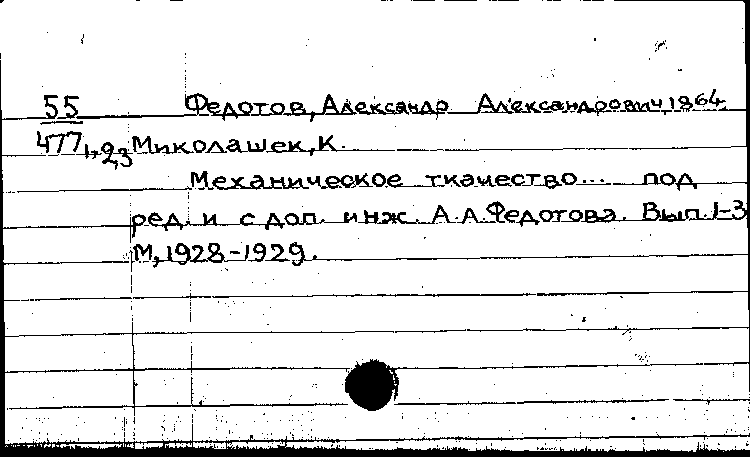 55 Федотов, Александр Александрович, 1864-
477 1,2,3 Миколашек, К.
Механическое ткачество... под
ред. и с доп. инж. А.А.Федотова. Вып.1-3
М, 1928-1929.